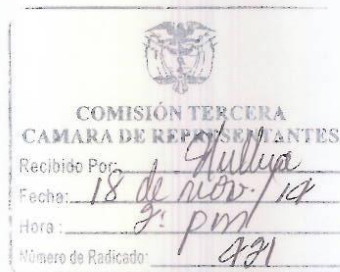 COMISIÓN TERCERA
CAMARA DE REPRESENTANTES
Recibido Por:
Fecha: 18 de nov. / 14
Hora: 2: pm
Número de Radicado: 421